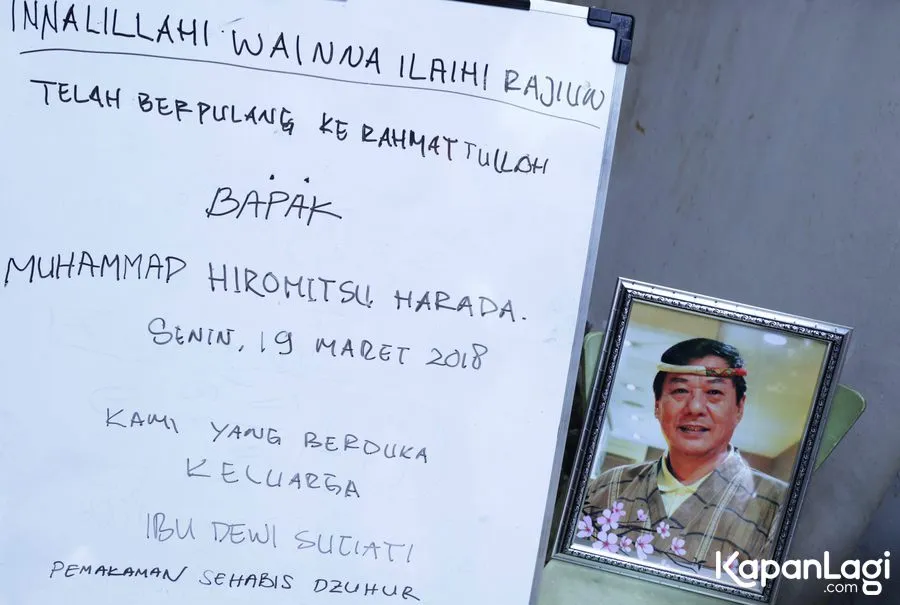 INNALILLAHI WAINNA ILAIHI RAJIUN
TELAH BERPULANG KE RAHMATTULLAH
BAPAK
MUHAMMAD HIROMITSU HARADA.
SENIN, 19 MARET 2018
KAMI YANG BERDUKA
KELUARGA
IBU DEWI SUCIATI
PEMAKAMAN SEHABIS DZUHUR
KapanLagi
.com